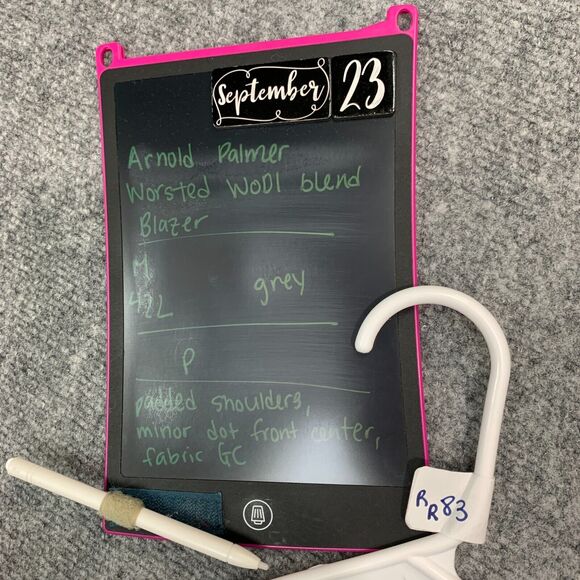 September 23
Arnold Palmer
Worsted Wool blend
Blazer
M
42L grey
P
padded shoulders,
minor dot front center,
fabric GC
R
R83